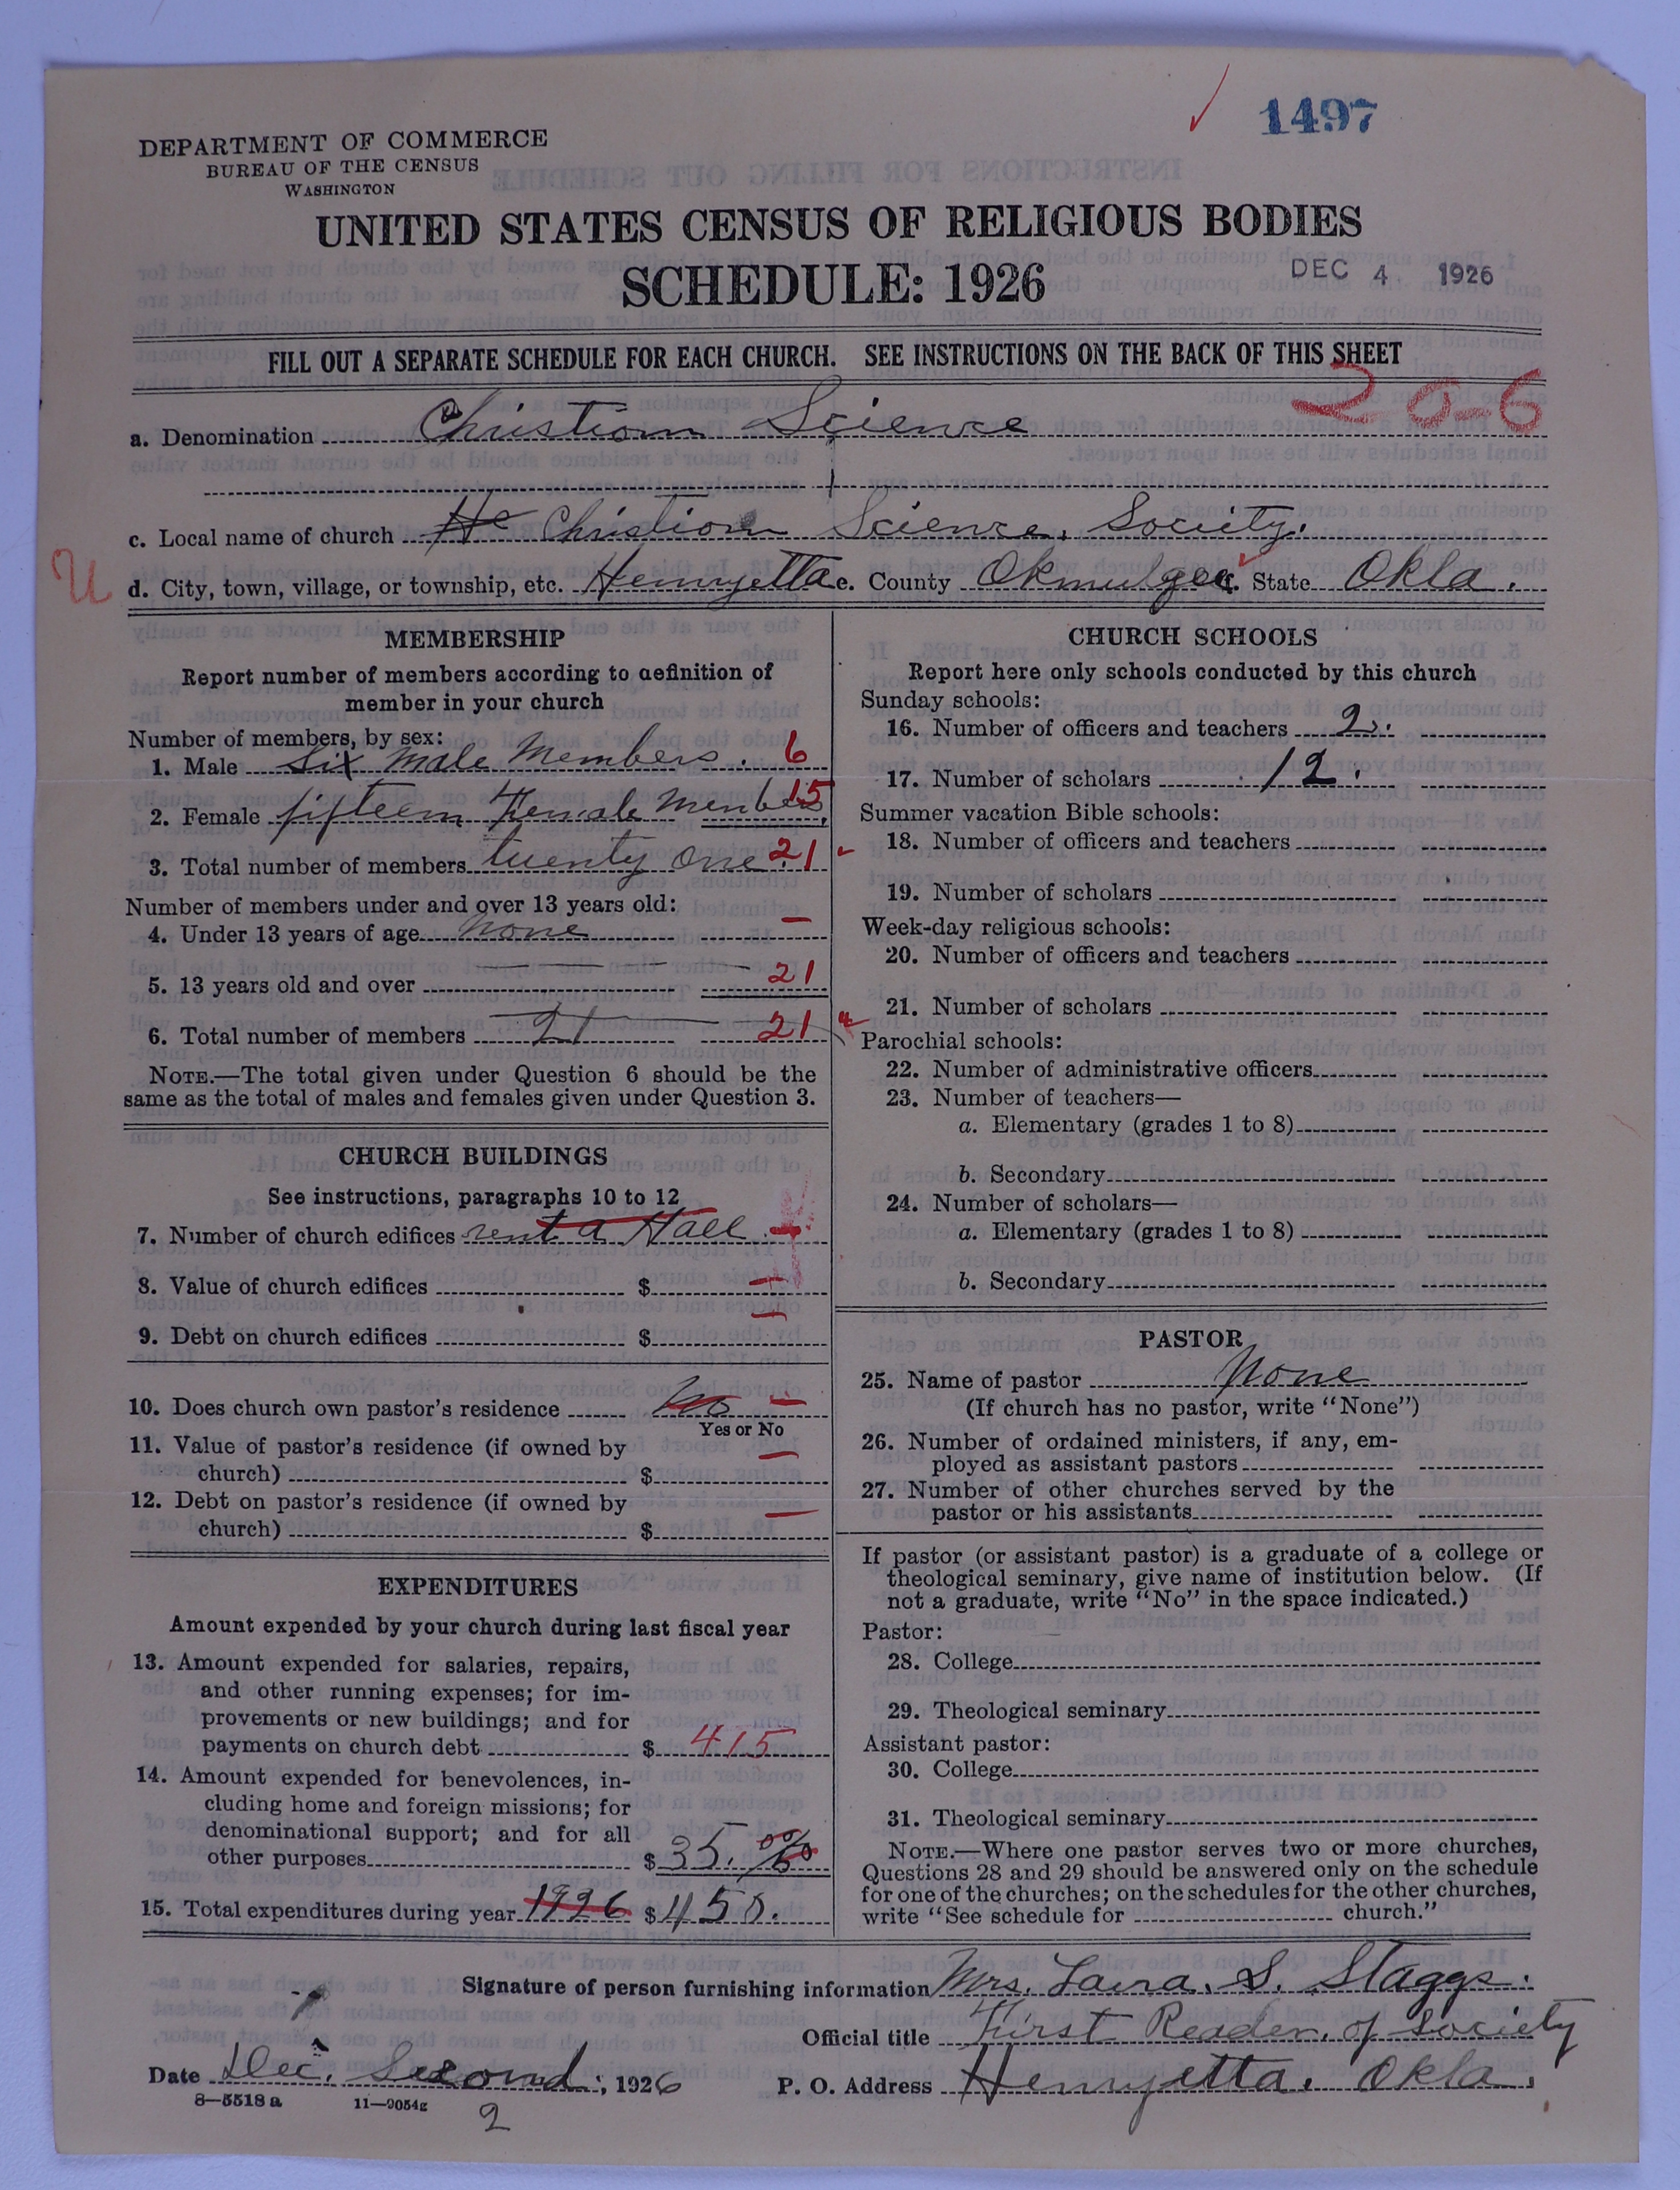 1497
DEPARTMENT OF COMMERCE
BUREAU OF THE CENSUS
WASHINGTON
UNITED STATES CENSUS OF RELIGIOUS BODIES
SCHEDULE: 1926
DEC 4 1926
FILL OUT A SEPARATE SCHEDULE FOR EACH CHURCH. SEE INSTRUCTIONS ON THE BACK OF THIS SHEET
20-6
a. Denomination Christian Science
c. Local name of church He Christian Science Society.
U
d. City, town, village, or township, etc. Henryetta e. County Okmulgee f. State Okla.
MEMBERSHIP
Report number of members according to definition of
member in your church
Number of members, by sex:
1. Male six male Members. 6
2. Female fifteen Female Members 15
3. Total number of members twenty one 21
Number of members under and over 13 years old:
4. Under 13 years of age none —
5. 13 years old and over 21
6. Total number of members 21 21
NOTE.—The total given under Question 6 should be the
same as the total of males and females given under Question 3.
CHURCH BUILDINGS
See instructions, paragraphs 10 to 12
7. Number of church edifices rent a Hall
8. Value of church edifices $ —
9. Debt on church edifices $ —
10. Does church own pastor's residence No —
Yes or No
11. Value of pastor's residence (if owned by
church) $ —
12. Debt on pastor's residence (if owned by
church) $ —
EXPENDITURES
Amount expended by your church during last fiscal year
13. Amount expended for salaries, repairs,
and other running expenses; for im-
provements or new buildings; and for
payments on church debt $ 415
14. Amount expended for benevolences, in-
cluding home and foreign missions; for
denominational support; and for all
other purposes $ 35.
15. Total expenditures during year 1926 $ 450.
CHURCH SCHOOLS
Report here only schools conducted by this church
Sunday schools:
16. Number of officers and teachers 2.
17. Number of scholars 12.
Summer vacation Bible schools:
18. Number of officers and teachers
19. Number of scholars
Week-day religious schools:
20. Number of officers and teachers
21. Number of scholars
Parochial schools:
22. Number of administrative officers
23. Number of teachers—
a. Elementary (grades 1 to 8)
b. Secondary
24. Number of scholars—
a. Elementary (grades 1 to 8)
b. Secondary
PASTOR
25. Name of pastor None
(If church has no pastor, write "None")
26. Number of ordained ministers, if any, em-
ployed as assistant pastors
27. Number of other churches served by the
pastor or his assistants
If pastor (or assistant pastor) is a graduate of a college or
theological seminary, give name of institution below. (If
not a graduate, write "No" in the space indicated.)
Pastor:
28. College
29. Theological seminary
Assistant pastor:
30. College
31. Theological seminary
NOTE.—Where one pastor serves two or more churches,
Questions 28 and 29 should be answered only on the schedule
for one of the churches; on the schedules for the other churches,
write "See schedule for church."
Signature of person furnishing information Mrs. Laura. S. Staggs.
Official title First Reader, of Society
Date Dec. Second, 1926
P. O. Address Henryetta. Okla.
8—5518a 11—9054g
2